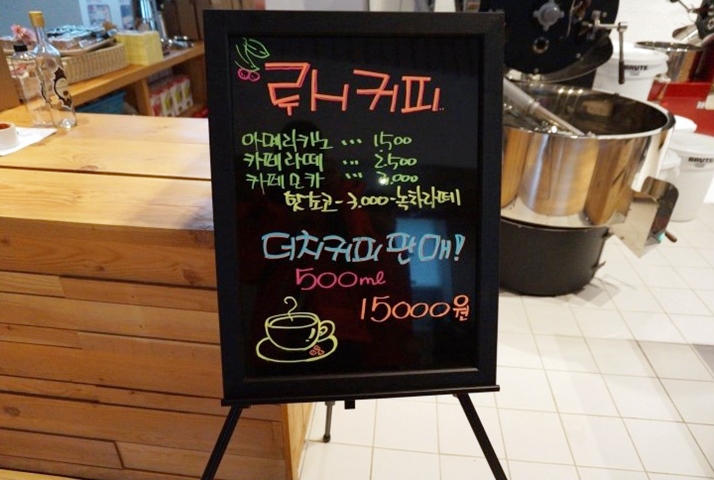 루H커피..
아메리카노 ... 1500
카페라떼 ... 2500
카페모카 ... 3,000
핫초코-3,000-녹차라떼
더치커피판매!
500ml
15000원
BRUTE
BRUTE